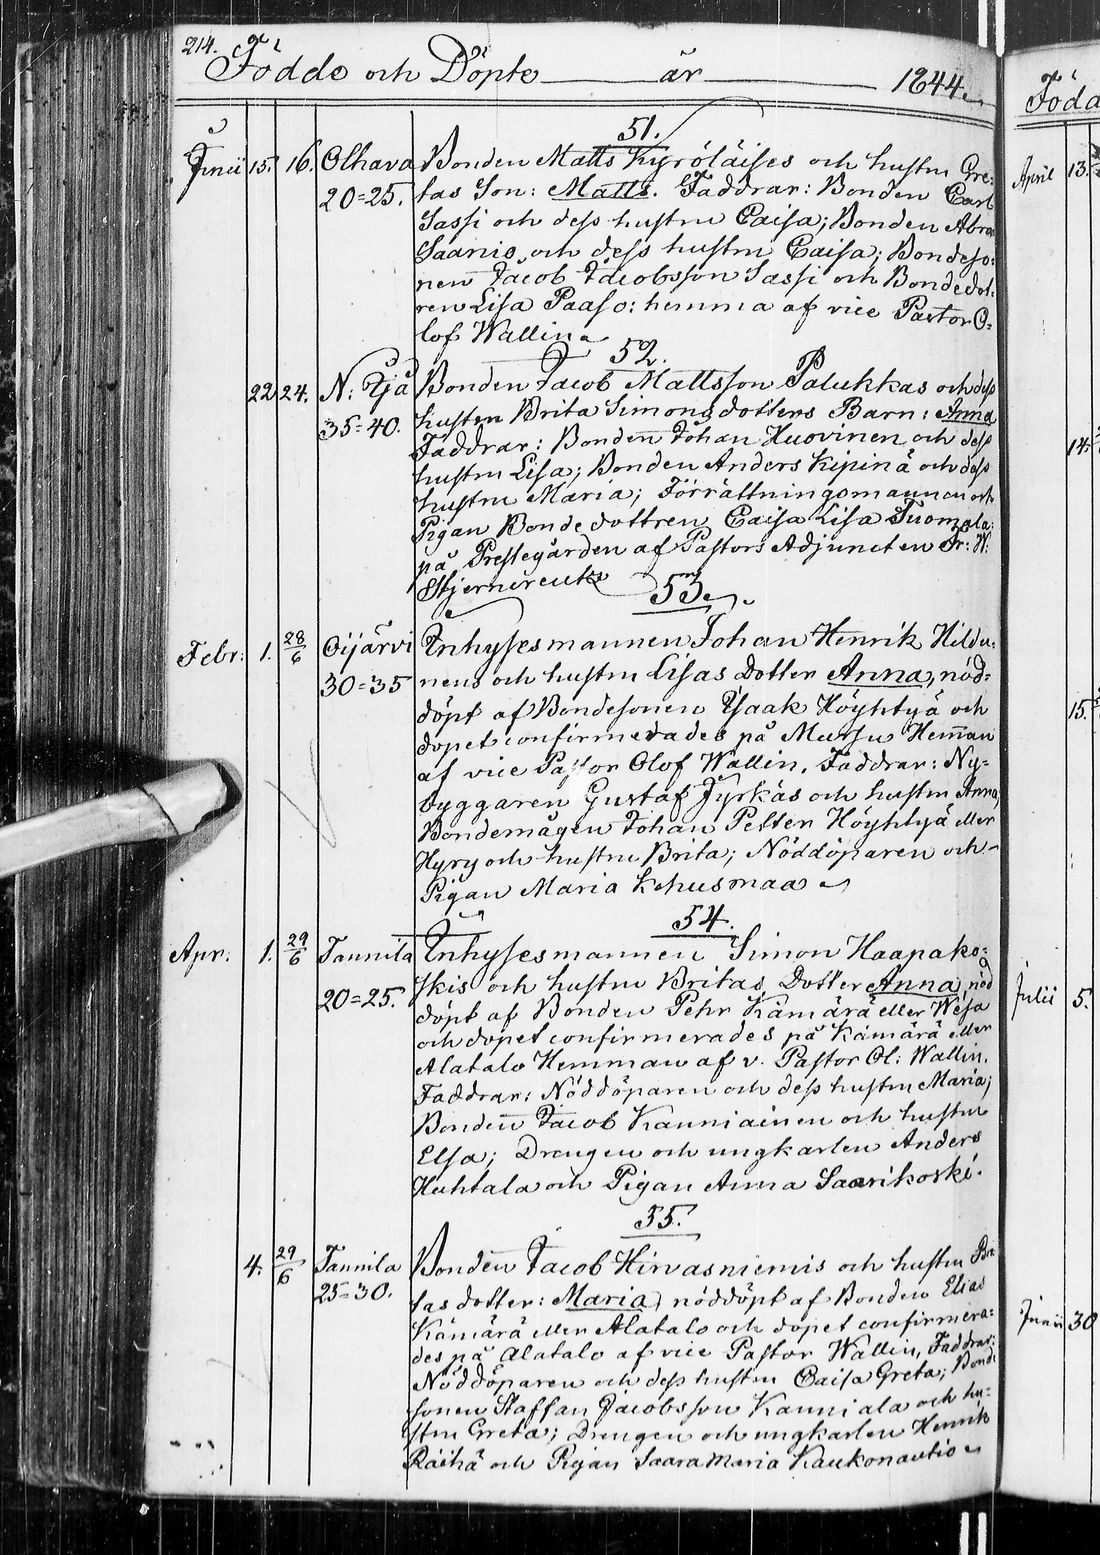 214.
Födde och Döpte år 1844.
51.
Junii 15. 16. Olhava Bonden Matts Kyröläises och hustru Gre-
20=25. tas Son: Matts. Faddrar: Bonden Carl
Sassi och dess hustru Caisa; Bonden Abra
Saario och dess hustru Caisa; Bondeso-
nen Jacob Jacobsson Sassi och Bondedot-
ren Lisa Paaso: hemma af vice Pastor O-
lof Wallin.
52.
22 24. N: Ijå Bonden Jacob Mattsson Palukkas och dess
35=40. hustru Brita Simonsdotters Barn: Anna
Faddrar: Bonden Johan Huovinen och dess
hustru Lisa; Bonden Anders Kipinä och dess
hustru Maria; Förrättningsmannen och
Pigan Bondedottren Caisa Lisa Tuomela:
på Prestegården af Pastors Adjuncten Fr: W:
Stjerncreutz
53.
Febr: 1. 28/6 Oijärvi Inhysesmannen Johan Henrik Hildu-
30=35 nens och hustru Lisas Dotter Anna, nöd-
döpt af Bondesonen Isaak Höyhtyä och
dopet confirmerades på Mursu Hemman
af vice Pastor Olof Wallin. Faddrar: Ny-
byggaren Gustaf Jyrkäs och hustru Anna
Bondemågen Johan Petter Höyhtyä eller
Hyry och hustru Brita; Nöddöparen och
Pigan Maria Kehusmaa
54.
Apr: 1. 29/6 Tannila Inhysesmannen Simon Haapako-
20=25. skis och hustru Britas Dotter Anna, nöd
döpt af Bonden Pehr Kämärä eller Wesa
och dopet confirmerades på Kämärä eller
Alatalo Hemman af v. Pastor Ol: Wallin.
Faddrar: Nöddöparen och dess hustru Maria;
Bonden Jacob Kauniainen och hustru
Elsa; Drengen och ungkarlen Anders
Huhtala och Pigan Anna Saarikoski.
55.
4. 29/6 Tannila Bonden Jacob Hirvasniemis och hustru Bri
25=30. tas dotter: Maria, nöddöpt af Bonden Elias
Kämärä eller Alatalo och dopet confirmera-
des på Alatalo af vice Pastor Wallin, Faddrar:
Nöddöparen och dess hustru Caisa Greta; Bonde
sonen Staffan Jacobsson Kanniala och hu-
stru Greta; Drengen och ungkarlen Henrik
Räihä och Pigan Saara Maria Kaukonautio
Föda
April 13.
14.
15.
Julii 5.
Junii 30